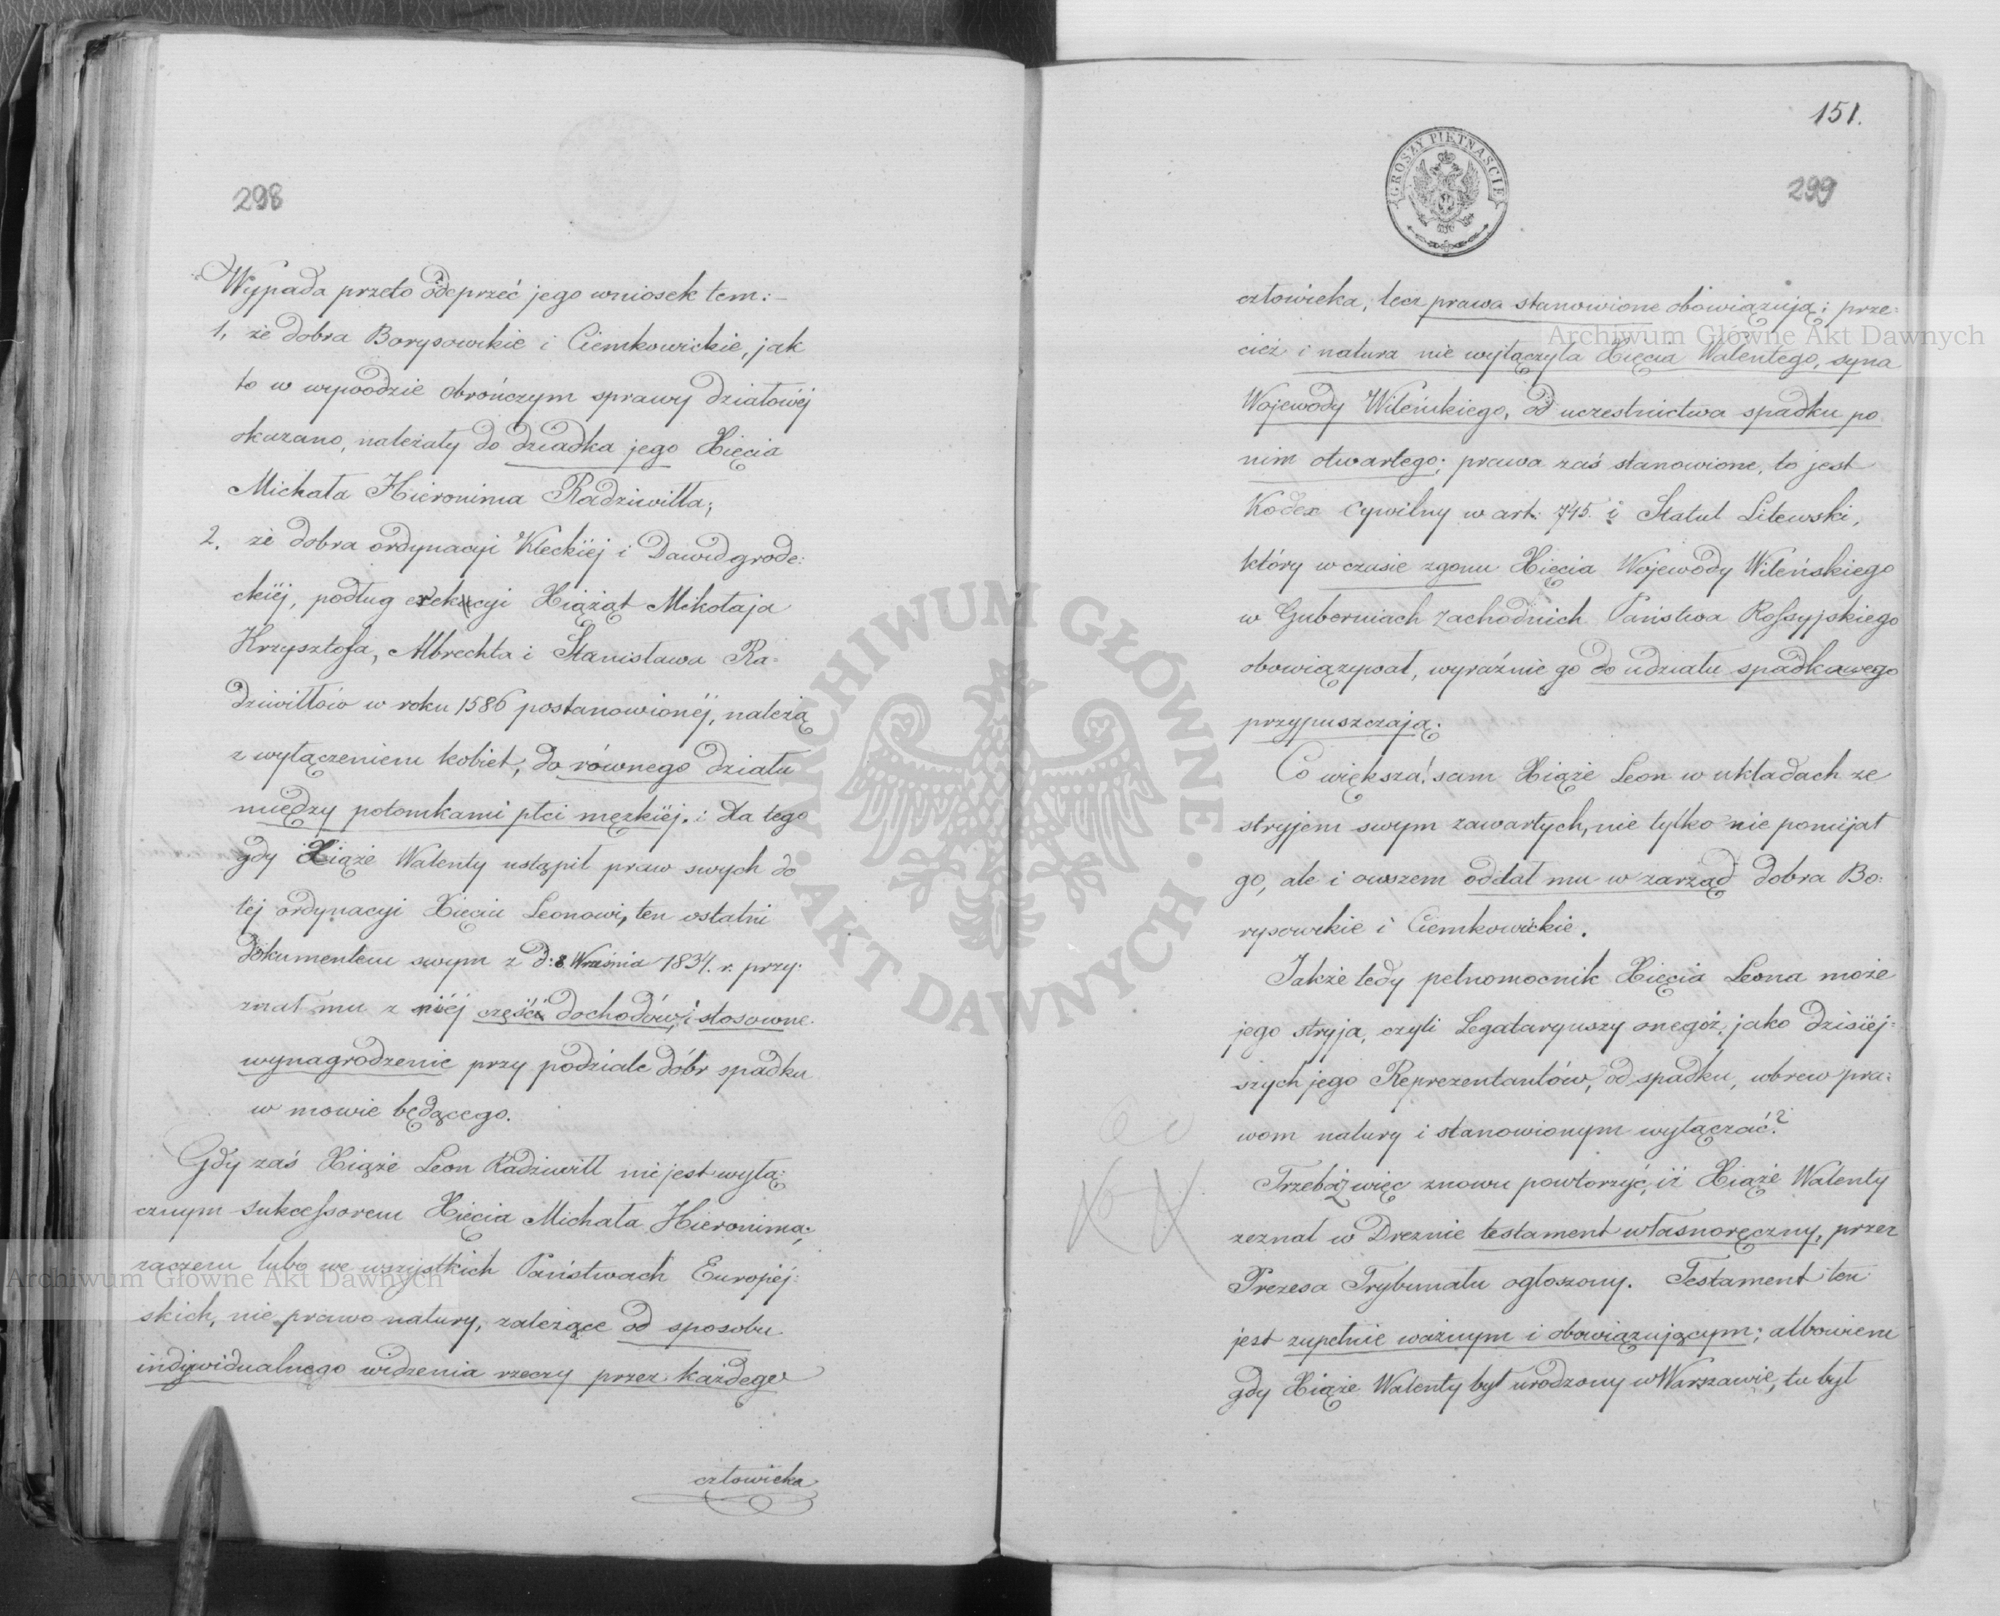 298
Wypada przeto odeprzeć jego wniosek tem: –
1, że dobra Borysowskie i Ciemkowickie, jak
to w wywodzie obrończym sprawy działowéj
okazano, należały do dziadka jego Xięcia
Michała Hieronima Radziwiłła;
2, że dobra ordynacyi Kleckiéj i Dawidgrode:
ckiéj, podług erekcyi Xiążąt Mikołaja
Krzysztofa, Albrechta i Stanisława Ra:
dziwiłłów w roku 1586 postanowionéj, należą
z wyłączeniem kobiet, do równego działu
między potomkami płci męzkiéj. i dla tego
gdy Xiąże Walenty ustąpił praw swych do
téj ordynacyi Xięciu Leonowi, ten ostatni
dokumentem swym z d: 8 Września 1834. r. przy:
znał mu z niéj część dochodów, i stosowne
wynagrodzenie przy podziale dóbr spadku
w mowie będącego.
Gdy zaś Xiąże Leon Radziwiłł nie jest wyłą:
cznym sukcessorem Xięcia Michała Hieronima;
zaczem lubo we wszystkich Państwach Européj:
skich, nie prawo natury, zależące od sposobu
indywidualnego widzenia rzeczy przez każdego
człowieka
151.
GROSZY PIĘTNAŚCIE
299
człowieka, lecz prawa stanowione obowiązują; prze:
cież i natura nie wyłączyła Xięcia Walentego, syna
Wojewody Wileńskiego, od uczestnictwa spadku po
nim otwartego; prawa zaś stanowione, to jest
Kodex Cywilny w art: 745. i Statut Litewski,
który w czasie zgonu Xięcia Wojewody Wileńskiego
w Guberniach Zachodnich Państwa Rossyjskiego
obowiązywał, wyraźnie go do udziału spadkowego
przypuszczają.
Co większa! sam Xiąże Leon w układach ze
stryjem swym zawartych, nie tylko nie pomijał
go, ale i owszem oddał mu w zarząd dobra Bo:
rysowskie i Ciemkowickie.
Jakże tedy pełnomocnik Xięcia Leona może
jego stryja, czyli Legataryuszy onegóż, jako dzisiéj:
szych jego Reprezentantów, od spadku, wbrew pra:
wom natury i stanowionym wyłączać?
Trzeba więc znowu powtórzyć, iż Xiąże Walenty
zeznał w Dreznie testament własnoręczny, przez
Prezesa Trybunału ogłoszony. Testament ten
jest zupełnie ważnym i obowiązującym; albowiem
gdy Xiąże Walenty był urodzony w Warszawie, tu był
Archiwum Główne Akt Dawnych
Archiwum Główne Akt Dawnych
ARCHIWUM GŁÓWNE · AKT DAWNYCH ·